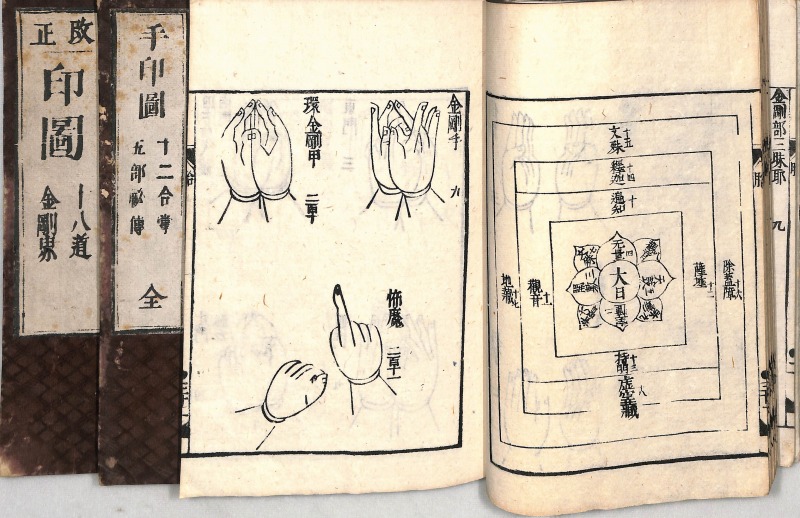 改正
印圖
十八道
金剛界
手印圖
十二合掌
五部秘傳
全
金剛手 九
環金剛甲 二章
怖魔 二章一
文殊 十五
釋迦 十四
遍知 十
大日
觀音 十一
地藏 十七
薩埵 十二
除蓋障 十六
持明 十三
虛空藏 八
金剛部三昧耶 九
胎